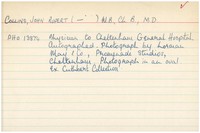 COLLINS, JOHN RUPERT ( — ) M.B., Ch.B., M.D.
Physician to Cheltenham General Hospital.
Autographed. Photograph by Norman
May & Co., Promenade Studios,
Cheltenham. Photograph is an oval
Ex Cuthbert Collection